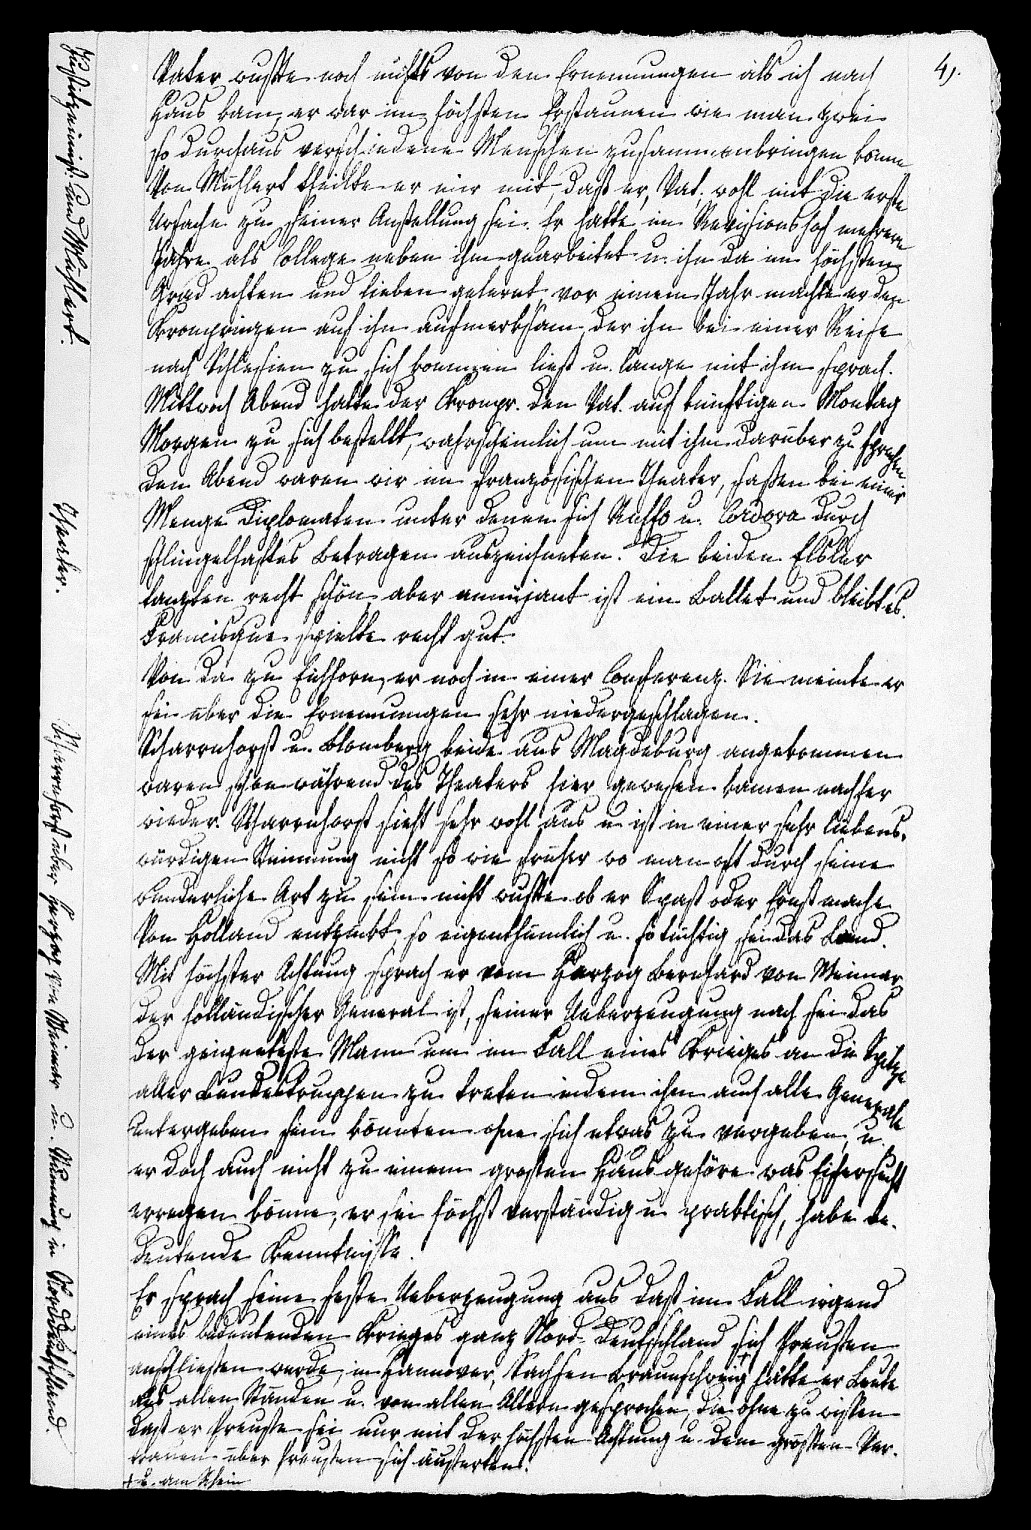 4,
Vater wußte noch nichts von den Ernennungen als ich nach
Haus kam, er war im höchsten Erstaunen wie man zwei
so durchaus verschiedene Menschen zusammenbringen könne
Von Mühlert theilte er mir mit, daß er, Vat. wohl mit die erste
Ursache zu seiner Anstellung sei. Er hatte im Revisionshof mehrere
Jahre als College neben ihm gearbeitet u. ihn da im höchsten
Grad achten und lieben gelernt, vor einem Jahr machte er den
Kronprinzen auf ihn aufmerksam, der ihn bei einer Reise
nach Schlesien zu sich kommen ließ u. lange mit ihm sprach.
Mittwoch Abend hatte der Kronpr. den Vat. auf künftigen Montag
Morgen zu sich bestellt, wahrscheinlich um mit ihm darüber zu sprechen
Den Abend waren wir im französischen Theater, saßen bei einer
Menge Diplomaten unter denen sich Ruffo u. Cordova durch
schlingelhaftes Betragen auszeichneten. Die beiden Elsler
tanzten recht schön, aber ennüjant ist ein Ballet und bleibt es.
Francisque spielte recht gut.
Von da zu Eichhorn, er noch in einer Conferenz. Sie meinte er
sei über die Ernennungen sehr niedergeschlagen.
Scharrnhorst u. Blomberg beide aus Magdeburg angekommen
waren schon während des Theaters hier gewesen kamen nachher
wieder. Scharrnhorst sieht sehr wohl aus u. ist in einer sehr liebens-
würdigen Stimmung nicht so wie früher wo man oft durch seine
wunderliche Art zu sein nicht wußte ob er Spaß oder Ernst mache
Von Holland entzückt, so eigenthümlich u. so tüchtig sei das Land.
Mit höchster Achtung sprach er vom Herzog Bernhard von Weimar,
der holländischer General ist, seiner Ueberzeugung nach sei das
der geignetste Mann um im Fall eines Krieges an die Spitze
aller Bundestruppen zu treten indem ihm auch alle Generale
untergeben sein könnten ohne sich etwas zu vergeben, u.
er doch auch nicht zu einem großen Haus gehöre was Eifersucht
erregen könne, er sei höchst verständig u. praktisch, habe be-
deutende Kenntnisse.
Er sprach seine feste Ueberzeugung aus daß im Fall irgend
eines bedeutenden Krieges ganz Nord-Deutschland sich Preußen
anschließen werde, in Hannover, Sachsen Braunschweig + hätte er Leute
aus allen Ständen u. von allen Altern gesprochen, die ohne zu wissen
daß er Preuße sei nur mit der höchsten Achtung u. dem größten Ver-
trauen über Preußen sich äußerten.
+ u. am Rhein
Justitzminist. und Mühlert.
Theater.
Scharrnhorst über Herzog von Weimar u. Stimmung in Norddeutschland.